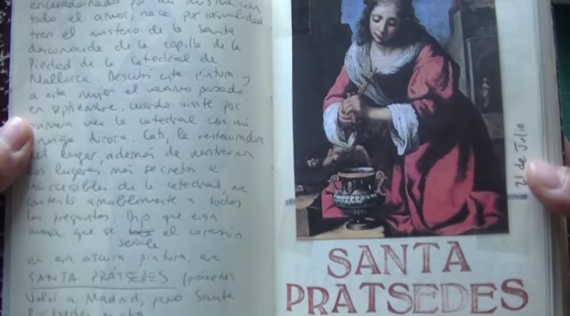 encuadernado por mi misma con
todo el amor, nace por casualidad
tras el misterio de la santa
desconocida de la capilla de la
Piedad de la Catedral de
Mallorca. Descubrí esta pintura y
a esta mujer el verano pasado
en septiembre, cuando visité por
primera vez la catedral con mi
amiga Aurora. Cati, la restauradora
del lugar, además de mostrarnos
los lugares más secretos e
inaccesibles de la catedral, me
contestó amablemente a todas
las preguntas. Dijo que esa
monja que se el corazón
señala
en esa oscura pintura, era
SANTA PRÁTSEDES
Volví a Madrid, pero Santa
21 de Julio
SANTA
PRATSEDES